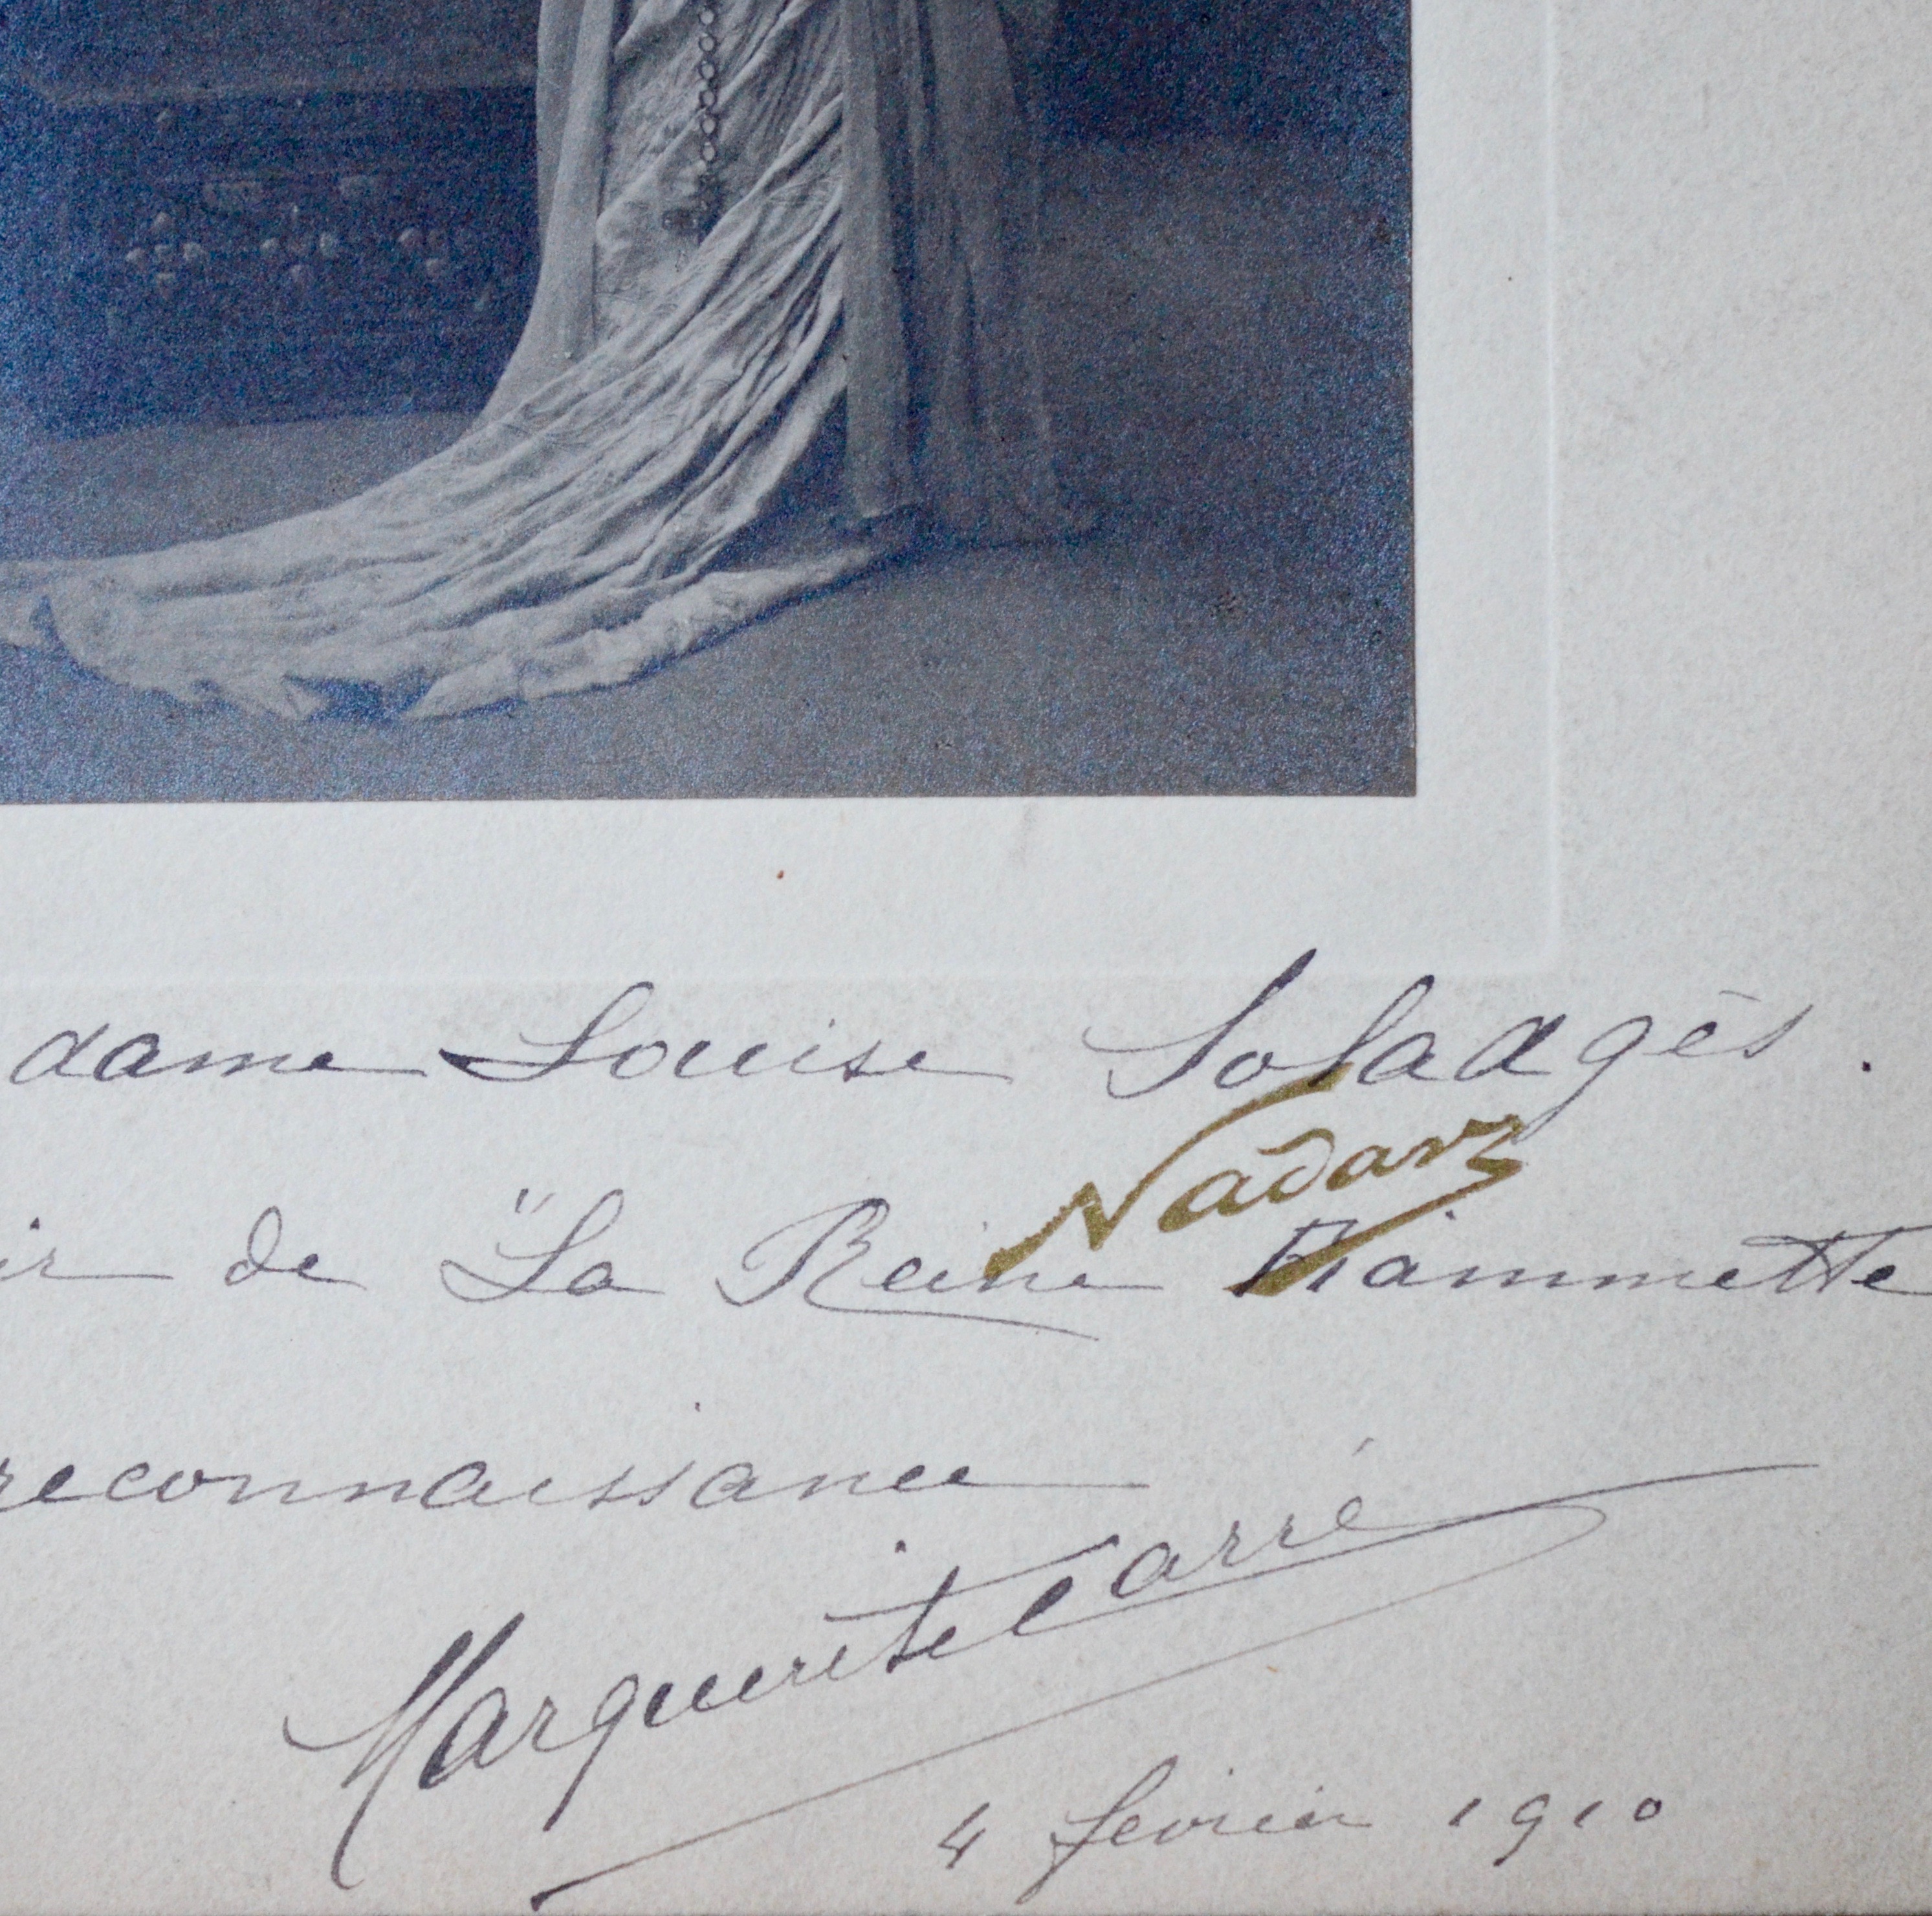 dame Louise Soladgès.
Nadar
ir de "La Reine Fiammette
reconnaissance
Marguerite Carré
4 fevrier 1910